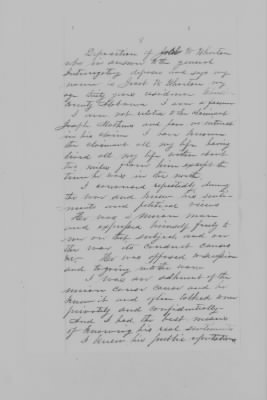 Deposition of Jacob W. Wharton
who in answer to the general
Interrogatory deposes and says my
name is Jacob W. Wharton my
age thirty years residence
County Alabama. I am a farmer
I am not related to the claimant
Joseph Mathews and have no interest
in his claim. I have known
the claimant all my life having
lived all my life within
two miles from him except the
time he was in the north.
I conversed repeatedly during
the war and knew his senti-
ments and political views
He was a union man
and expressed himself freely to
me on that subject and on
the war its conduct causes
&c. He was opposed to secession
and to going into the war.
I was an adherent of the
union cause and he
knew it and often talked
privately and confidentially
And I had the best means
of knowing his real sentiments
I knew his public reputation